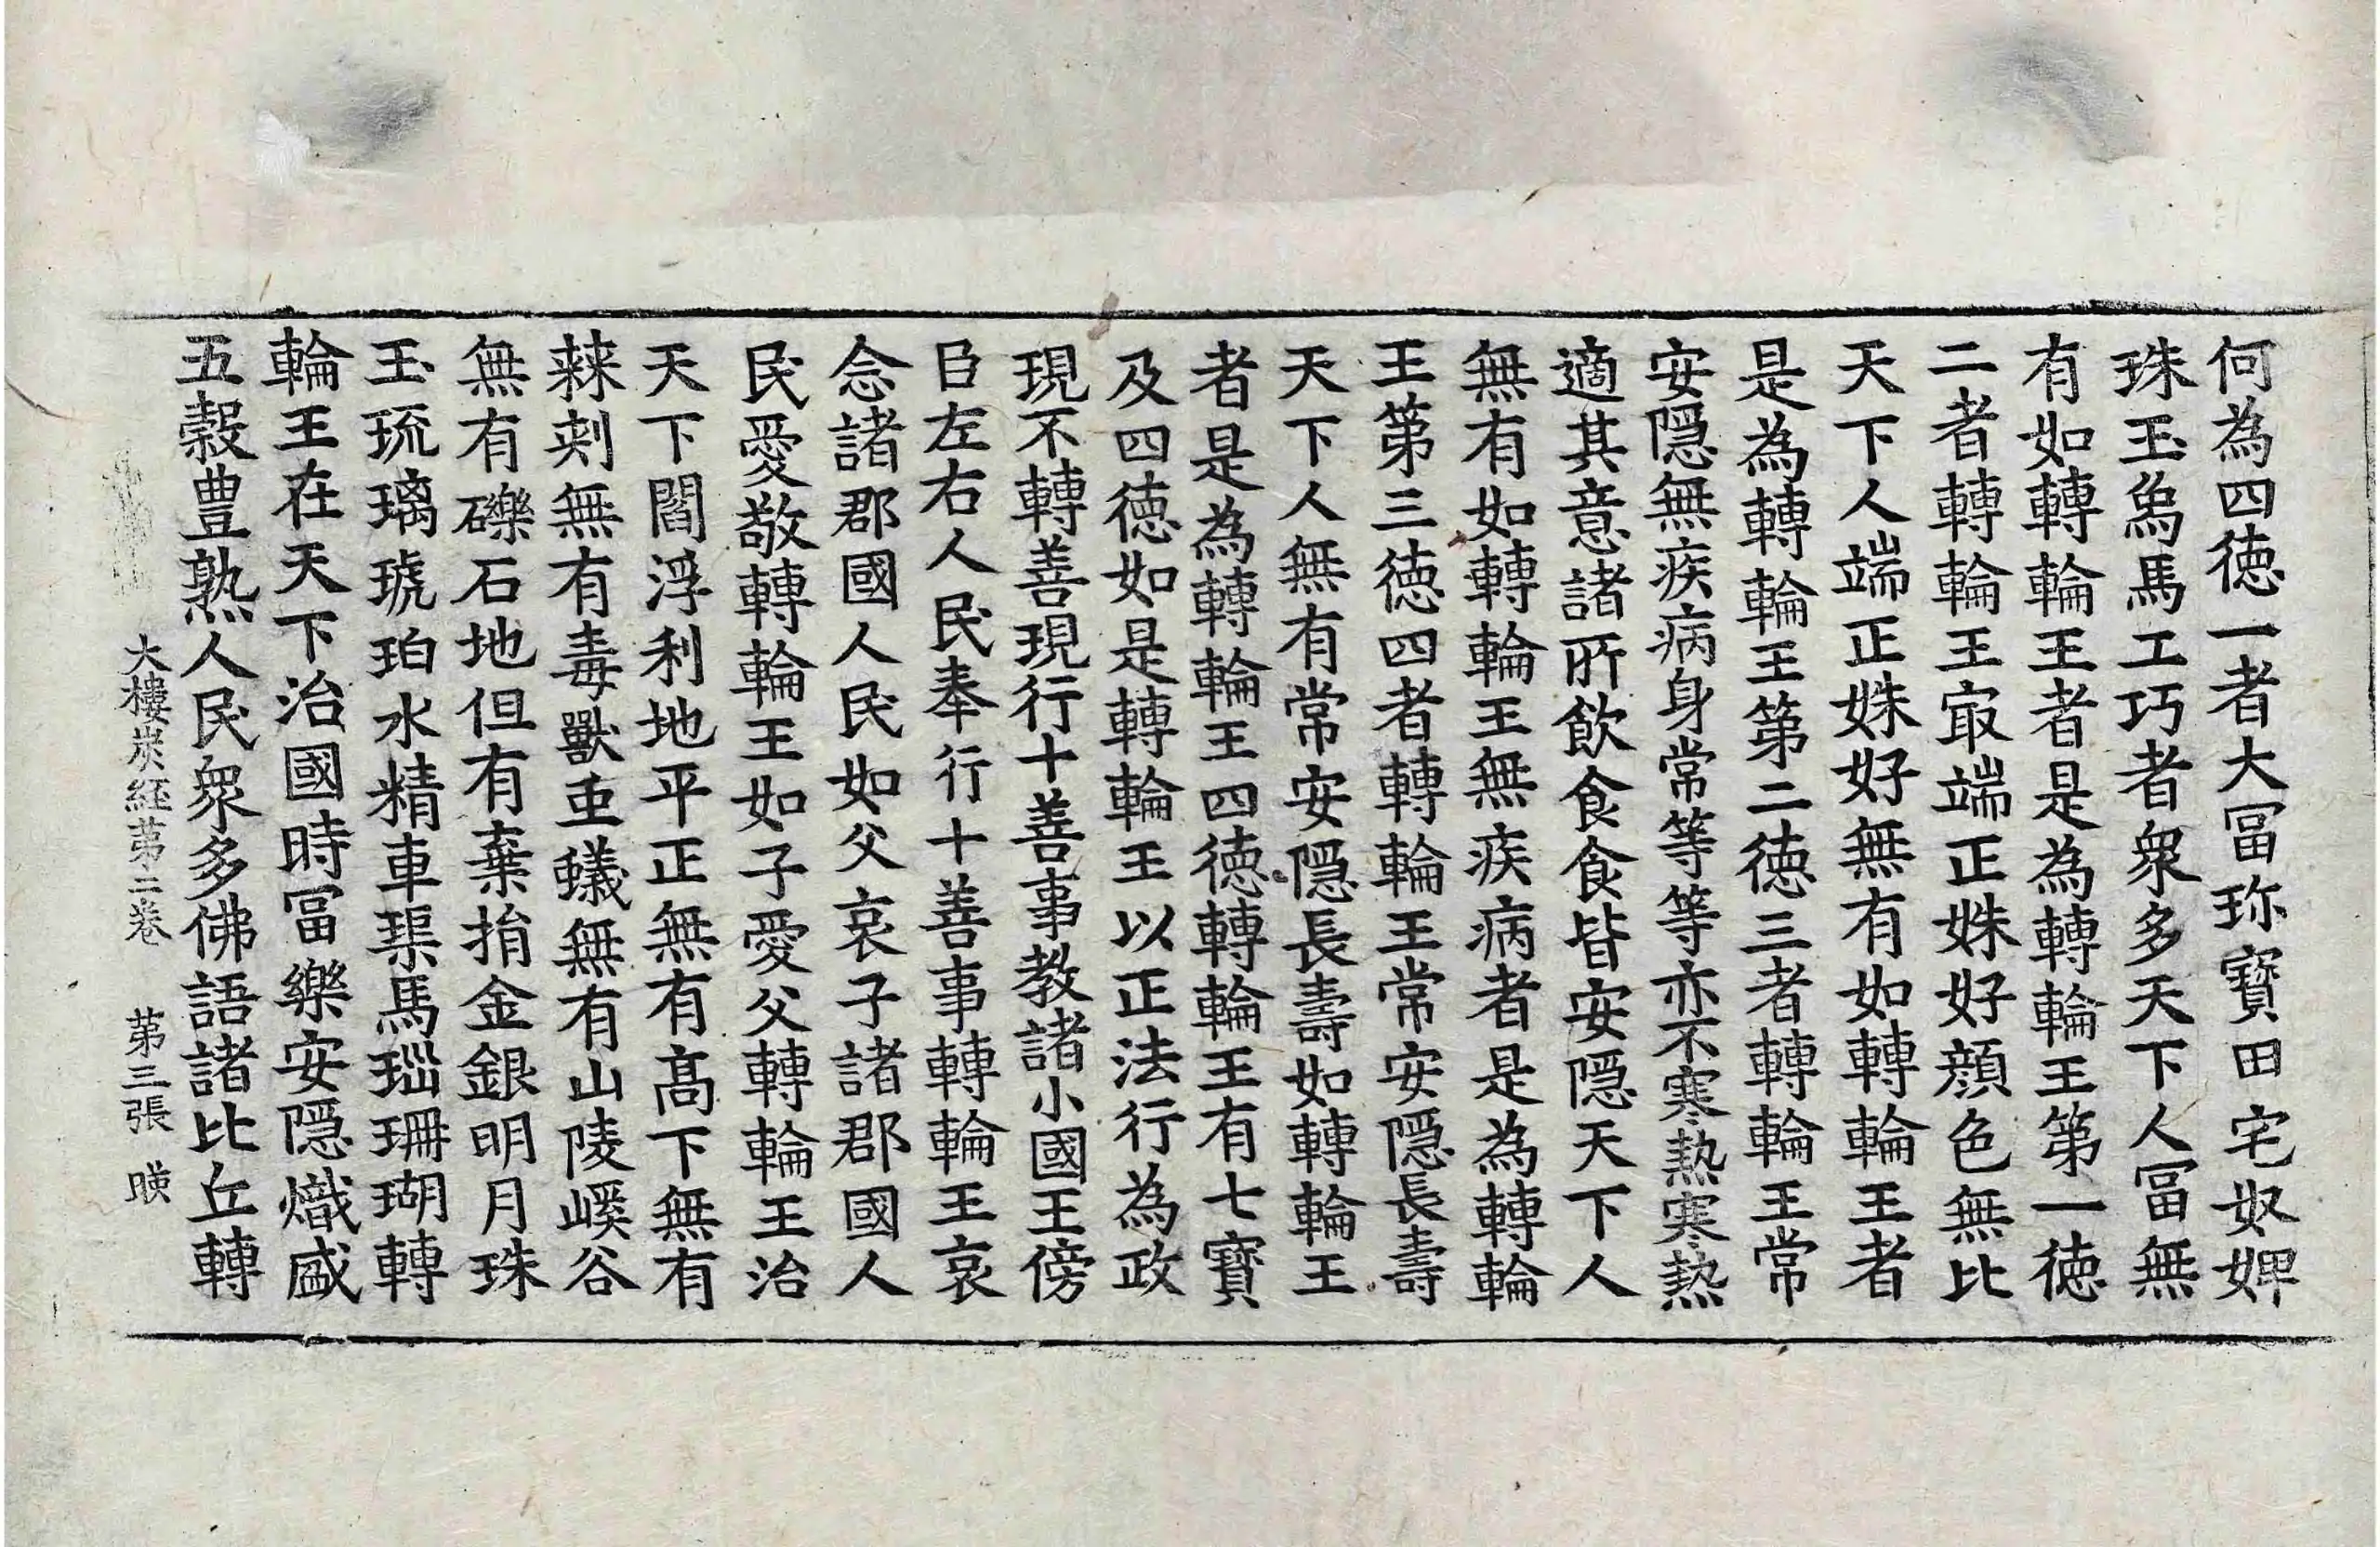 何為四徳一者大冨珎寶田宅奴婢
珠玉象馬工巧者衆多天下人冨無
有如轉輪王者是為轉輪王第一徳
二者轉輪王㝡端正姝好顔色無比
天下人端正姝好無有如轉輪王者
是為轉輪王第二徳三者轉輪王常
安隠無疾病身常等等亦不寒熱寒熱
適其意諸所飲食食皆安隠天下人
無有如轉輪王無疾病者是為轉輪
王第三徳四者轉輪王常安隠長壽
天下人無有常安隠長壽如轉輪王
者是為轉輪王四徳轉輪王有七寶
及四徳如是轉輪王以正法行為政
現不轉善現行十善事教諸小國王傍
臣左右人民奉行十善事轉輪王哀
念諸郡國人民如父哀子諸郡國人
民愛敬轉輪王如子愛父轉輪王治
天下閻浮利地平正無有髙下無有
棘刾無有毒獸䖝蟻無有山陵嵠谷
無有礫石地但有棄捐金銀明月珠
玉琉璃琥珀水精車璖馬瑙珊瑚轉
輪王在天下治國時冨樂安隠熾盛
五穀豊熟人民衆多佛語諸比丘轉
大樓炭経第二卷 第三張 暎